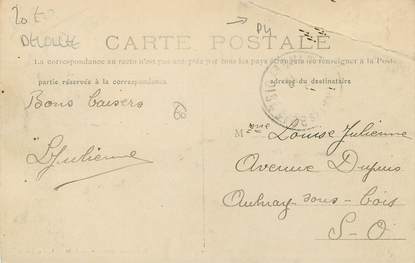 20 t
P4
CARTE POSTALE
La correspondance au recto n'est pas acceptée par tous les pays étrangers (se renseigner à la Poste)
partie réservée à la correspondance
adresse du destinataire
Bons baisers
Mme Louise Julienne
L Julienne
Avenue Dupuis
Aulnay-sous-bois
S-O